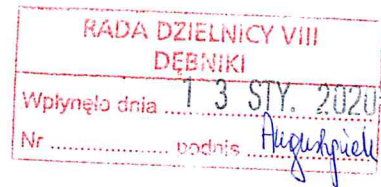 RADA DZIELNICY VIII
DĘBNIKI
Wpłynęło dnia 13 STY. 2020
Nr ............ podpis